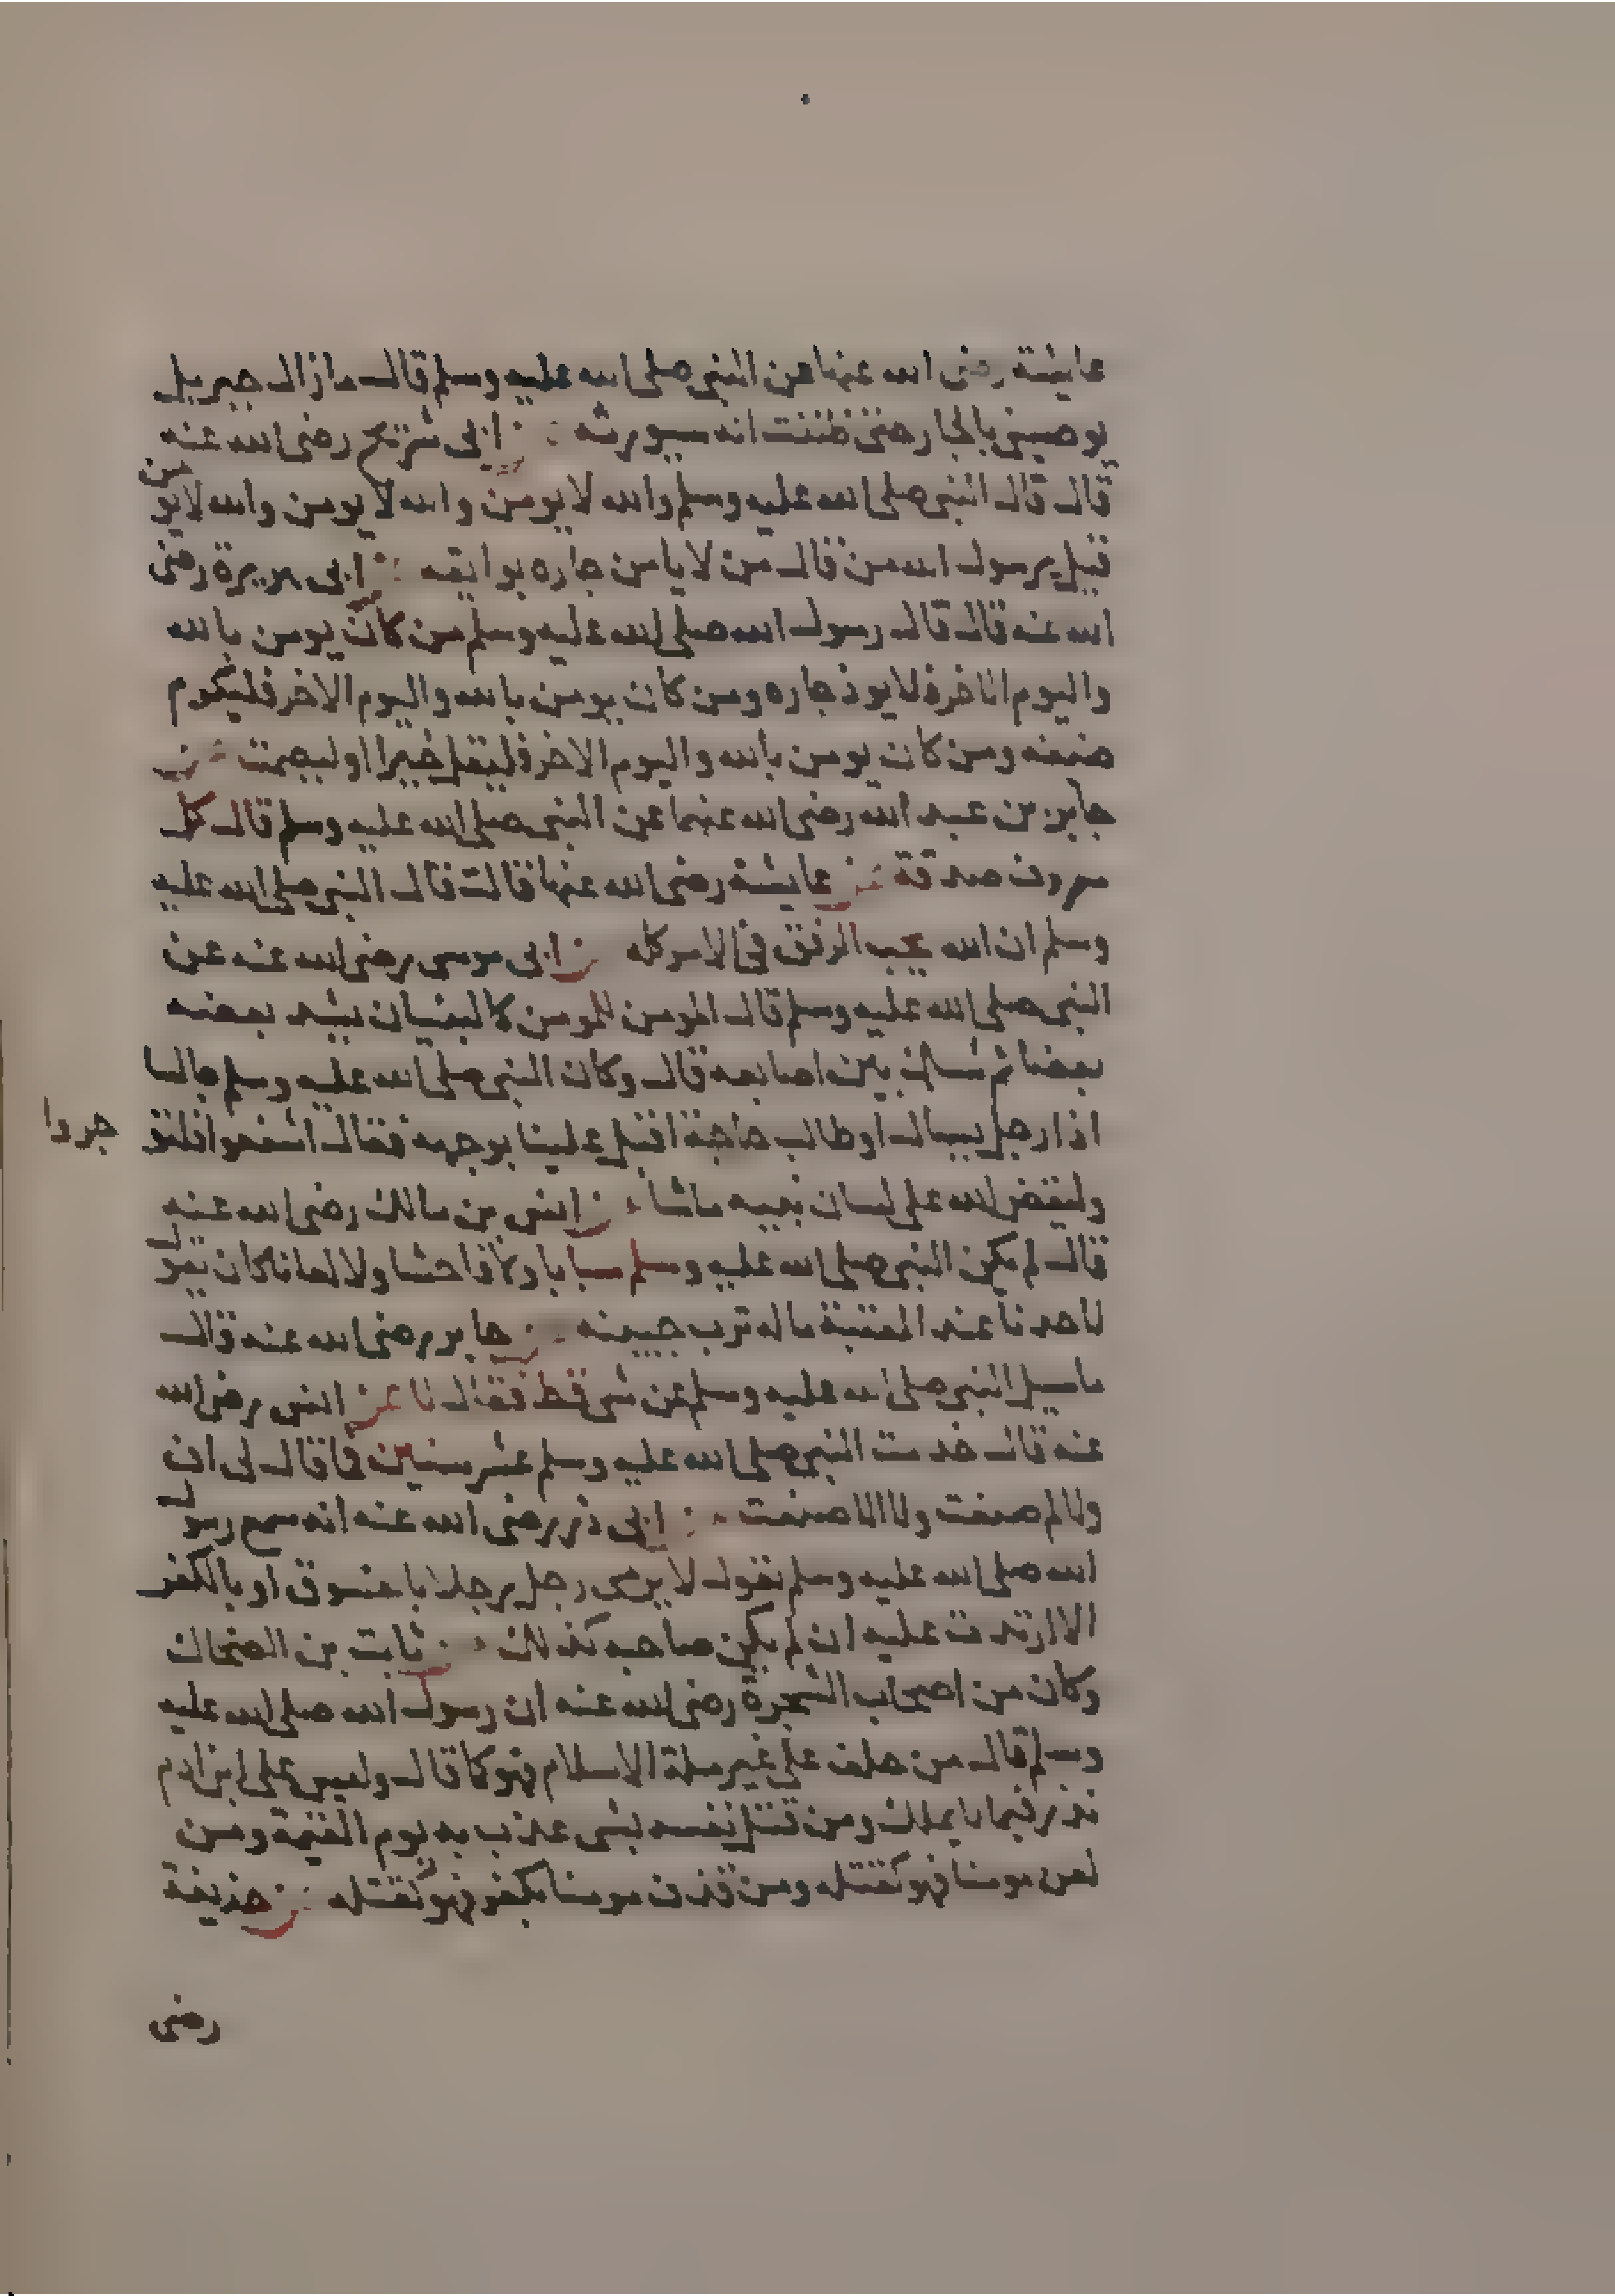 عايشة رضى الله عنها عن النبى صلى الله عليه وسلم قال مازال جبريل
يوصينى بالجار حتى ظننت انه سيورثه عن ابى شريح رضى الله عنه
قال قال النبى صلى الله عليه وسلم والله لا يومن والله لا يومن والله لا يومن
قيل يرسول الله من قال من لا يامن جاره بوايقه عن ابى هريرة رضى
الله عنه قال قال رسول الله صلى الله عليه وسلم من كان يومن بالله
واليوم الاخر فلا يوذ جاره ومن كان يومن بالله واليوم الاخر فليكرم
ضيفه ومن كان يومن بالله واليوم الاخر فليقل خيرا او ليصمت عن
جابر بن عبد الله رضى الله عنهما عن النبى صلى الله عليه وسلم قال كل
معروف صدقة عن عايشة رضى الله عنها قالت قال النبى صلى الله عليه
وسلم ان الله يحب الرفق فى الامر كله عن ابى موسى رضى الله عنه عن
النبى صلى الله عليه وسلم قال المومن للمومن كالبنيان يشد بعضه
بعضا ثم شبك بين اصابعه قال وكان النبى صلى الله عليه وسلم جالسا
اذا رجل يسال او طالب حاجة اقبل علينا بوجهه فقال اشفعوا فلتؤ
جروا
وليقض الله على لسان نبيه ماشا عن انس بن مالك رضى الله عنه
قال لم يكن النبى صلى الله عليه وسلم سبابا ولا فاحشا ولا لعانا كان يقول
لاحدنا عند المعتبة ماله ترب جبينه عن جابر رضى الله عنه قال
ماسيل النبى صلى الله عليه وسلم عن شى قط فقال لا عن انس رضى الله
عنه قال خدمت النبى صلى الله عليه وسلم عشر سنين فما قال لى اف
ولا لم صنعت ولا الا صنعت عن ابى ذر رضى الله عنه انه سمع رسول
الله صلى الله عليه وسلم يقول لا يرمى رجل رجلا بالفسوق او بالكفر
الا ارتدت عليه ان لم يكن صاحبه كذلك عن ثابت بن الضحاك
وكان من اصحاب الشجرة رضى الله عنه ان رسول الله صلى الله عليه
وسلم قال من حلف على غير ملة الاسلام فهو كما قال وليس على ابن ادم
نذر فيما لا يملك ومن قتل نفسه بشى عذب به يوم القيمة ومن
لعن مومنا فهو كقتله ومن قذف مومنا بكفر فهو كقتله عن حذيفة
رضى